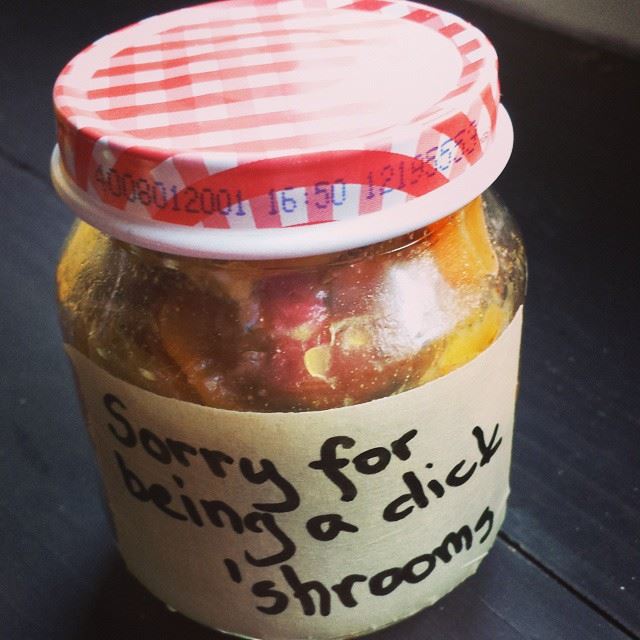 4008012001 16:50 12195553
Sorry for
being a dick
'shrooms